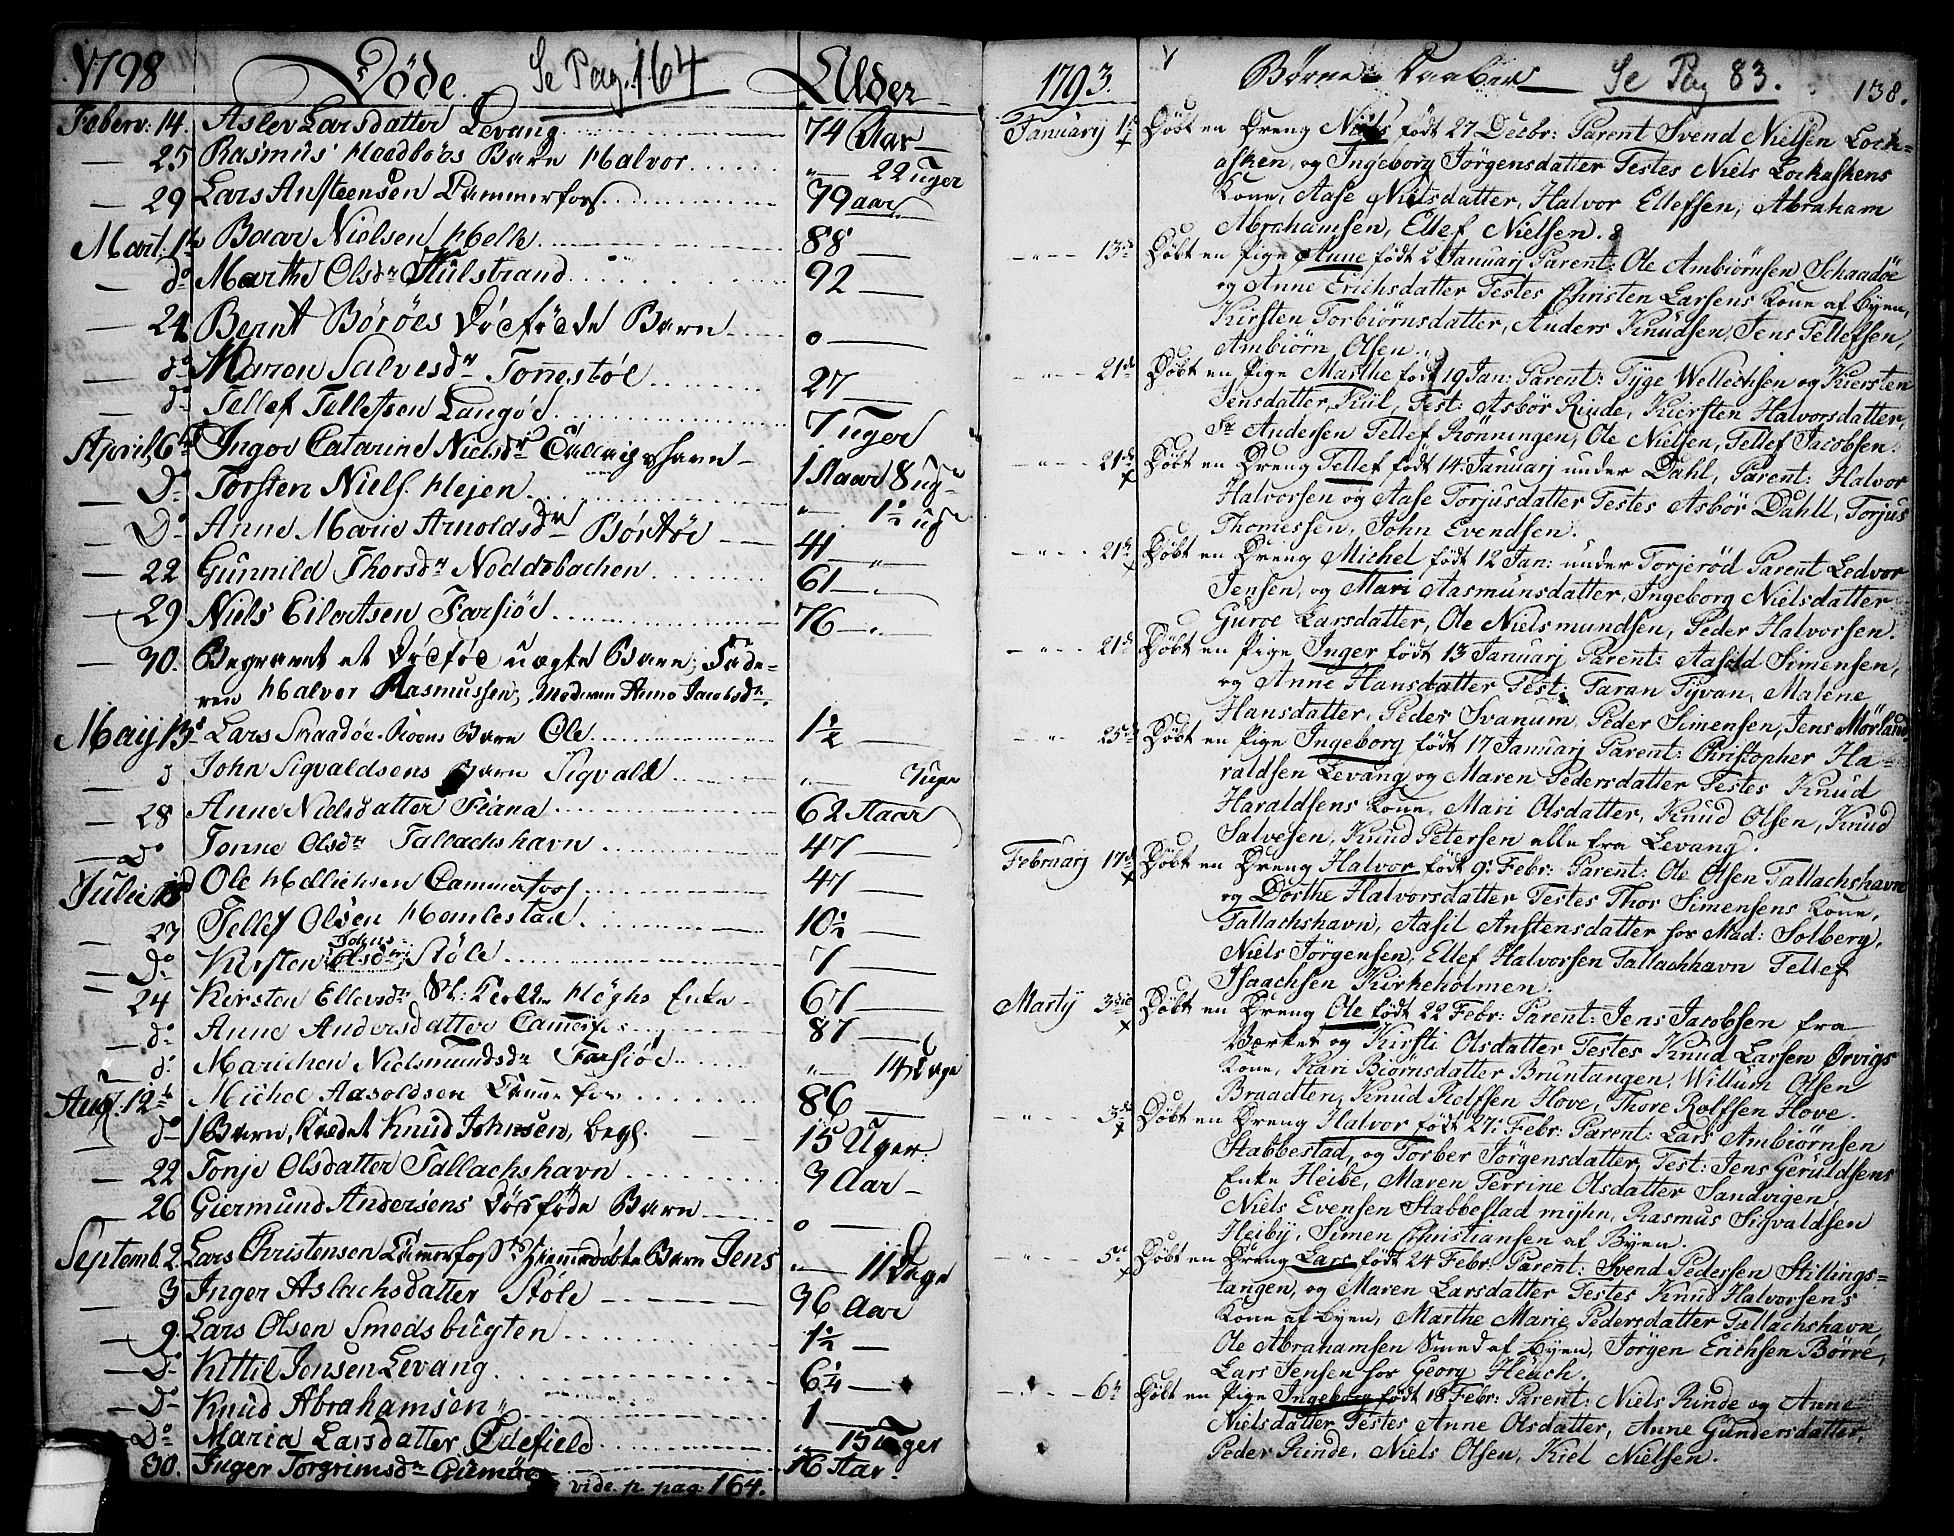 1798 Döde. Se Pag. 164 Alder
Feberv: 14. Aslev Larsdatter Levang 74 Aar
25 Rasmus Barn Halvor 22 uger
29 Lars Ansteensen 79 aar
Mart. Baar Nielsen Helle 88
do Marthe Olsdr Kiilstrand 92
24 Bernt Böröes Dödföde Barn 0
do Maren Salvesdr Tonnestöl 27
do Tellef Tellefsen Langöe 7 uger
April 6 Inger Catarine Nielsdr 1 Aar 8 ug
Do Torsten Niels. Hejen 1½ ug
Do Anne Marie Arnoldsdr Börtöe 41
22 Gunnild Thorsdr Noddebachen 61
29 Niels Eilertsen Farsiöe 76
30. Begravet et Dödföd uægte Barn; Fade-
ren Halvor Rasmussen, Moderen Anne Jacobsdr.
Maij 13 Lars Skaadöe Barn Ole 1½
d John Sigvaldsens Barn Sigvald 3 uger
28 Anne Nielsdatter Fiane 62 Aar
Do Tonne Olsdr Tallachshavn 47
Julii 18 Ole Hellichsen Cammerfoss 47
23 Tellef Olsen Homlestad 10½
Do Kirsten Johns Olsdr Stöle 7
24 Kirsten Ellevsdr Sl: Höghs Enke 67
do Anne Andersdatter 87
d. Marichen Nielsmundsdr Farsiöe 14 Dage
Aug. 12 Michel Aasoldsen 86
do 1 Barn, Knud Johnsen, begl. 15 Uger
22 Tonje Olsdatter Tallachshavn 3 Aar
26 Giermund Andersens Dödföde Barn 0
Septemb. 2. Lars Christensen Hiemmedöbte Barn Jens 11 Dage
3 Inger Aslachsdatter Stöle 36 Aar
9. Lars Olsen Smedsbugten 1½
Do Kittil Jensen Levang 6¼
Do Knud Abrahamsen 1
Do Maria Larsdatter Ödefield 15 Uger
30. Inger Torgrimsdr 16 Aar.
vide p. pag: 164.
1793. Börne Daaber Se Pag 83. 138.
Januarij Döbt en Dreng Niels födt 27 Decbr: Parent Svend Nielsen Lock-
asken, og Ingeborg Jörgensdatter Testes Niels Lockaskens
Kone, Aase Nielsdatter, Halvor Ellefsen, Abraham
Abrahamsen, Ellef Nielsen.
13 Döbt en Pige Anne födt 2 Januarj Parent: Ole Ambiörnsen Schaadöe
og Anne Erichsdatter Testes Christen Larsens Kone af Byen,
Kirsten Torbiörnsdatter, Anders Knudsen, Jens Tellefsen,
Ambiörn Olsen.
21 Döbt en Pige Marthe födt 19 Jan: Parent: Tyge Wellechsen og Kiersten
Jensdatter, Kiil, Test: Asbör Rinde, Kiersten Halvorsdatter,
Sr Andersen Tellef Rönningen, Ole Nielsen, Tellef Jacobsen.
21 Döbt en Dreng Tellef födt 14. Januarj under Dahl, Parent: Halvor
Halvorsen og Aase Torjusdatter Testes Asbör Dahll, Torjus
Thomessen, John Evendsen.
21 Döbt en Dreng Michel födt 12 Jan: under Torjeröd Parent Ledvor
Jensen, og Mari Aasmunsdatter, Ingeborg Nielsdatter
Gurve Larsdatter, Ole Nielsmundsen, Peder Halvorsen.
21 Döbt en Pige Inger födt 13 Januarj Parent: Aasold Simensen,
og Anne Hansdatter Test: Taran Tyvan, Malene
Hansdatter, Peder Svanum, Peder Simensen, Jens Mörland,
25 Döbt en Pige Ingeborg födt 17 Januarj Parent: Christopher Ha-
raldsen Levang og Maren Pedersdatter Testes Knud
Haraldsens Kone, Mari Olsdatter, Knud Olsen, Knud
Salvesen, Knud Petersen alle fra Levang.
Februarj 17 Döbt en Dreng Halvor födt 9. Febr: Parent: Ole Olsen Tallachshavn
og Dorthe Halvorsdatter Testes Thor Simensens Kone,
Tallachshavn, Aasil Anstensdatter hos Mad: Solberg,
Niels Jörgensen, Ellef Halvorsen Tallachhavn Tellef
Isaachsen Kirkeholmen.
Martij 3 Döbt en Dreng Ole födt 22 Febr: Parent: Jens Jacobsen fra
Værket og Kirsti Olsdatter Testes Knud Larsen Örvigs
Kone, Kari Biörnsdatter Bruntangen, Willum Olsen
Braadten, Knud Rolfsen Hove, Thore Rolfsen Hove.
3 Döbt en Dreng Halvor födt 27: Febr: Parent: Lars Ambiörnsen
Stabbestad, og Torber Jörgensdatter, Test: Jens Geruldsens
Enke Heibe, Maren Terrine Olsdatter Sandvigen,
Niels Evensen Stabbestad mijhn, Rasmus Sigvaldsen
Heiby, Simen Christiansen af Byen.
5 Döbt en Dreng Lars födt 24 Febr: Parent: Svend Pedersen Stillings-
tangen, og Maren Larsdatter Testes Knud Halvorsens
Kone af Byen, Marthe Marie Pedersdatter Tallachshavn,
Ole Abrahamsen Smed af Byen, Jörgen Erichsen Börre,
Lars Jensen hos Georg Heuch.
6 Döbt en Pige Ingeborg födt 18 Febr: Parent: Niels Rinde og Anne
Nielsdatter Testes Anne Olsdatter, Anne Gundersdatter,
Peder Rinde, Niels Olsen, Kiel Nielsen.